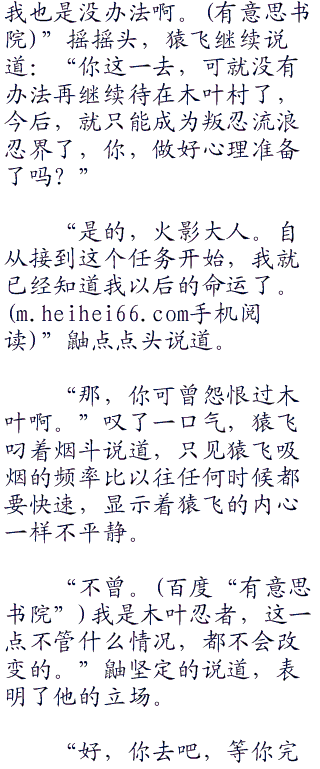 我也是没办法啊。(有意思书
院)”摇摇头，猿飞继续说
道：“你这一去，可就没有
办法再继续待在木叶村了，
今后，就只能成为叛忍流浪
忍界了，你，做好心理准备
了吗？”
“是的，火影大人。自
从接到这个任务开始，我就
已经知道我以后的命运了。
(m.heihei66.com手机阅
读)”鼬点点头说道。
“那，你可曾怨恨过木
叶啊。”叹了一口气，猿飞
叼着烟斗说道，只见猿飞吸
烟的频率比以往任何时候都
要快速，显示着猿飞的内心
一样不平静。
“不曾。(百度“有意思
书院”)我是木叶忍者，这一
点不管什么情况，都不会改
变的。”鼬坚定的说道，表
明了他的立场。
“好，你去吧，等你完